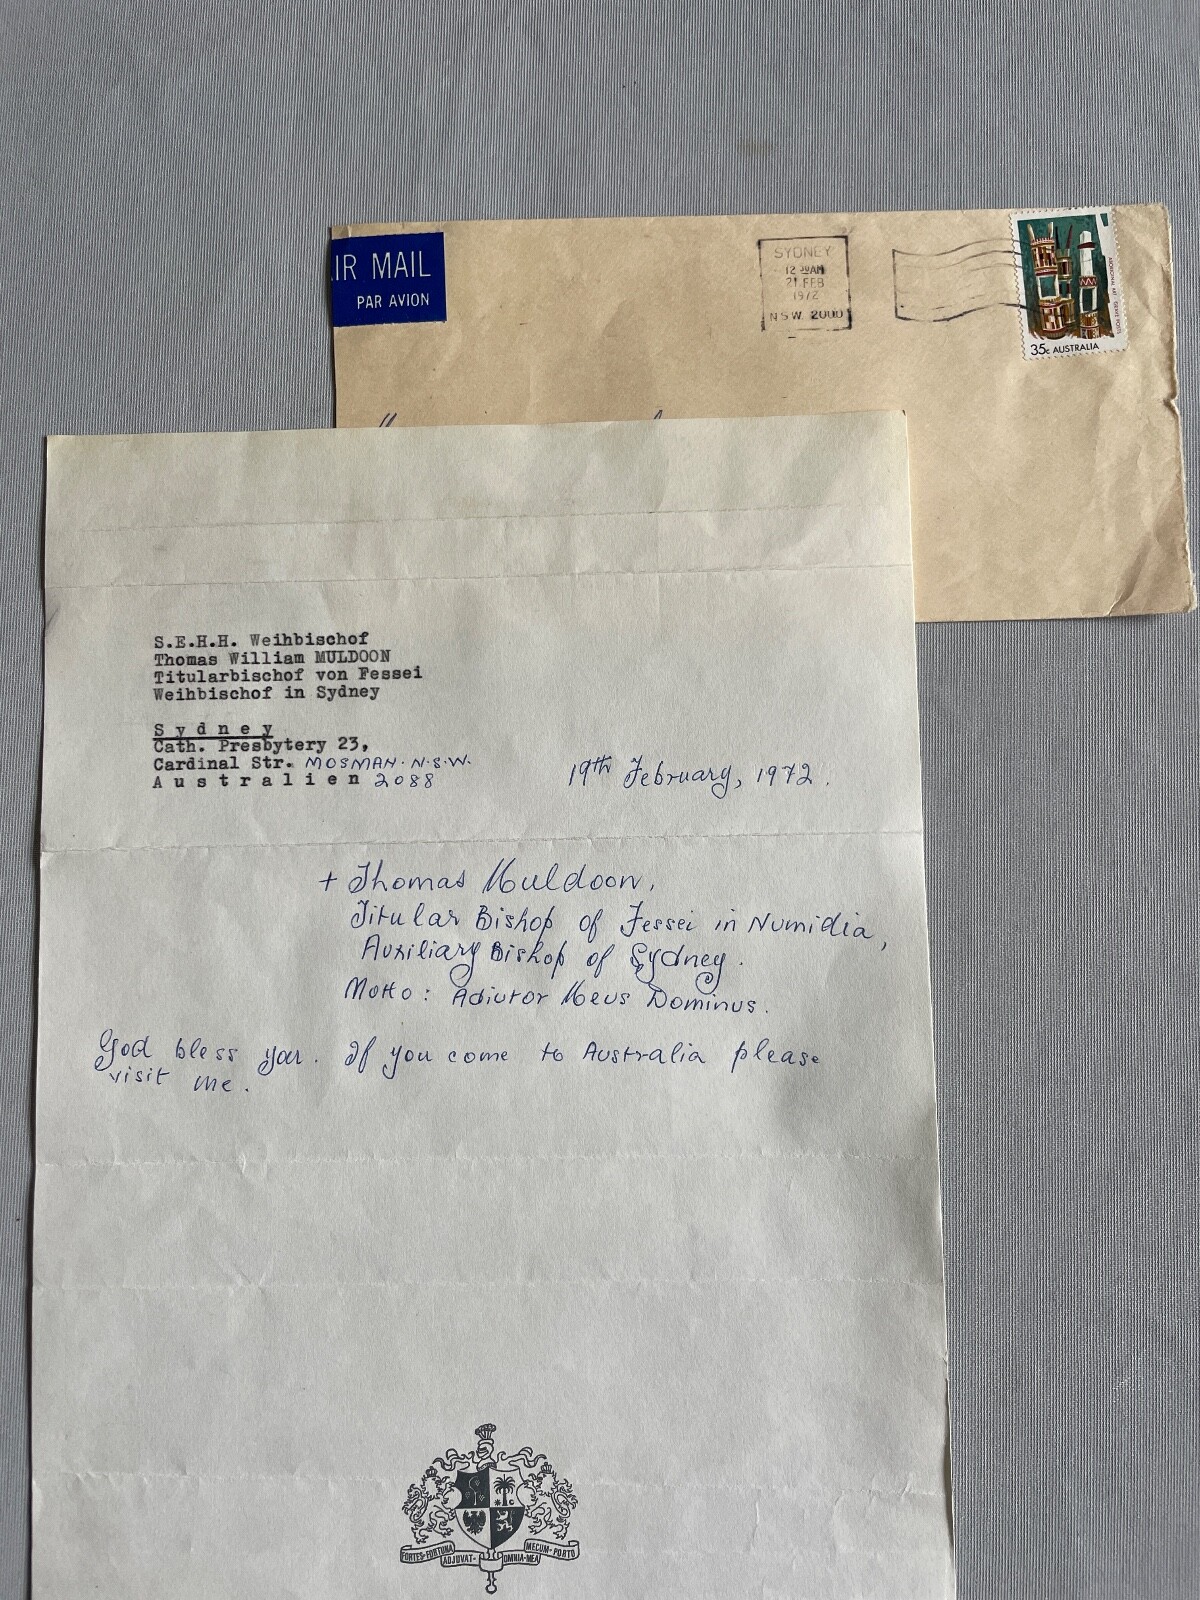 IR MAIL
PAR AVION
SYDNEY
12 AM
21 FEB
1972
N.S.W. 2000
35c AUSTRALIA
S.E.H.H. Weihbischof
Thomas William MULDOON
Titularbischof von Fessei
Weihbischof in Sydney
Sydney
Cath. Presbytery 23,
Cardinal Str. MOSMAN. N.S.W.
Australien 2088
19th February, 1972.
+ Thomas Muldoon,
Titular Bishop of Fessei in Numidia,
Auxiliary Bishop of Sydney.
Motto: Adiutor Meus Dominus.
God bless you. If you come to Australia please
visit me.
FORTES-FORTUNA
ADJUVAT-
OMNIA-MEA
MECUM-PORTO